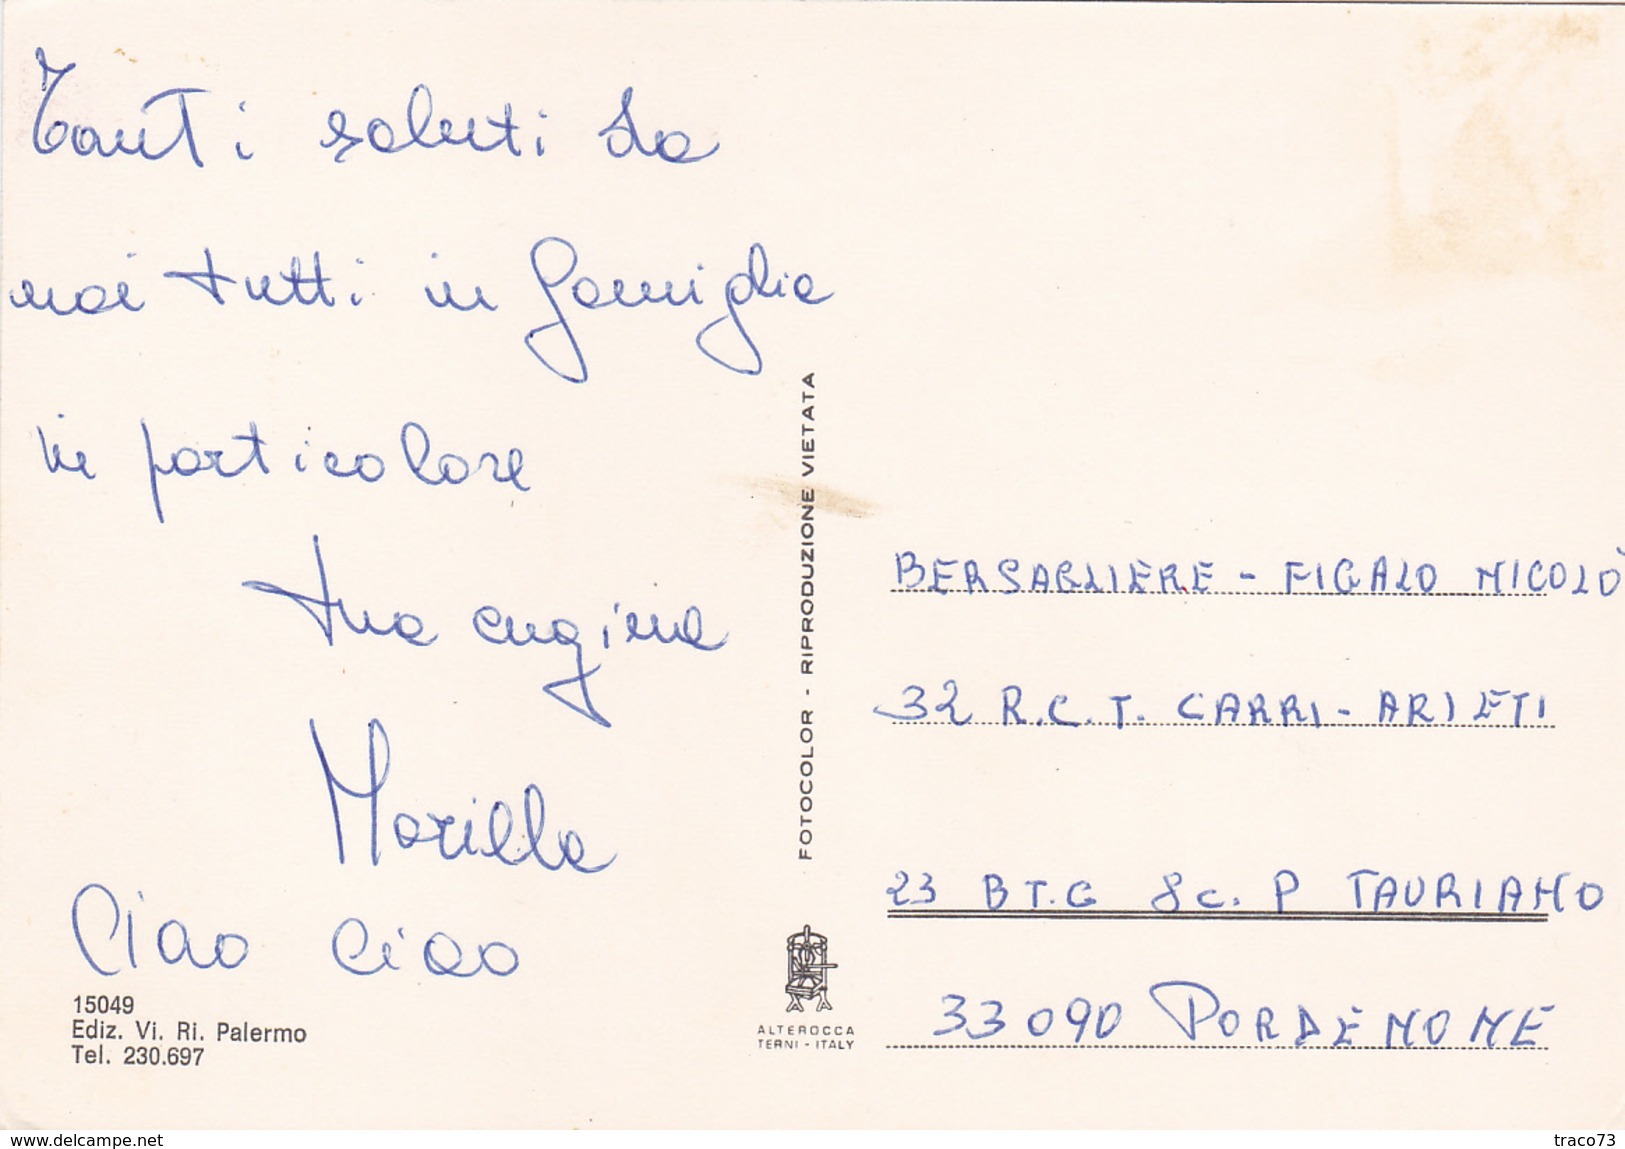 Tanti saluti da
noi tutti in famiglia
in particolare
tua cugina
Marilla
Ciao ciao
15049
Ediz. Vi. Ri. Palermo
Tel. 230.697
FOTOCOLOR - RIPRODUZIONE VIETATA
ALTEROCCA
TERNI - ITALY
BERSAGLIERE - FIGALO NICOLÒ
32 R.C.T. CARRI - ARIETI
23 BT.G Sc. P TAURIANO
33090 PORDENONE
www.delcampe.net
traco73